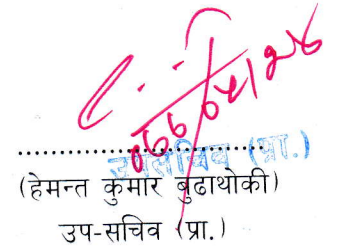 उपसचिव (प्रा.)
(हेमन्त कुमार बुढाथोकी)
उप-सचिव (प्रा.)